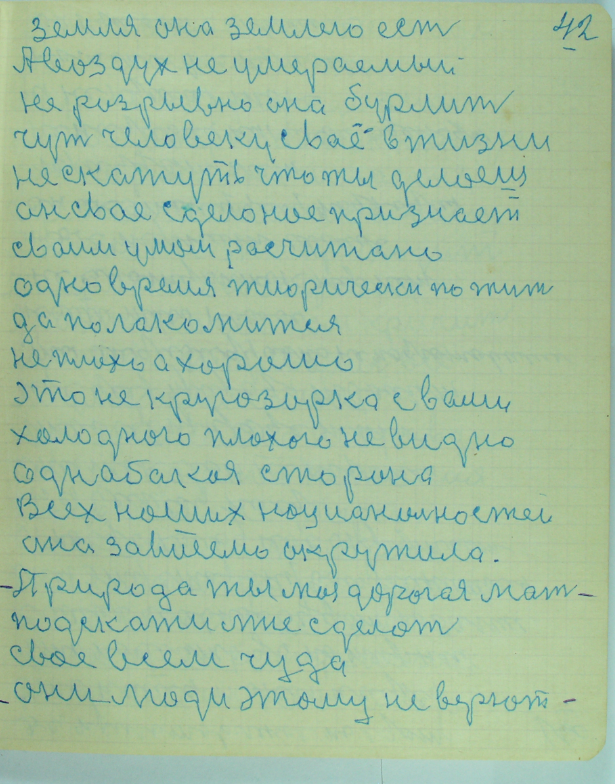 земля она землею ест 42
А воздух не умераемый
не розрывно она бурлит
чут человеку сваё в жизни
не скажуть что ты делоеш
он свае сделоное признает
сваим умом росчитано
одно время тиорически пожит
да полакомится
не плохо а хорошо
это не кругозорка с вами
холодного плохого не видно
однабакая сторона
Всех ноших ноцианолностей
она завсеми окружила.
-Природа ты моя дорогая мат-
подскажи мне сделот
свое всем чуда
-они люди этому не верют-